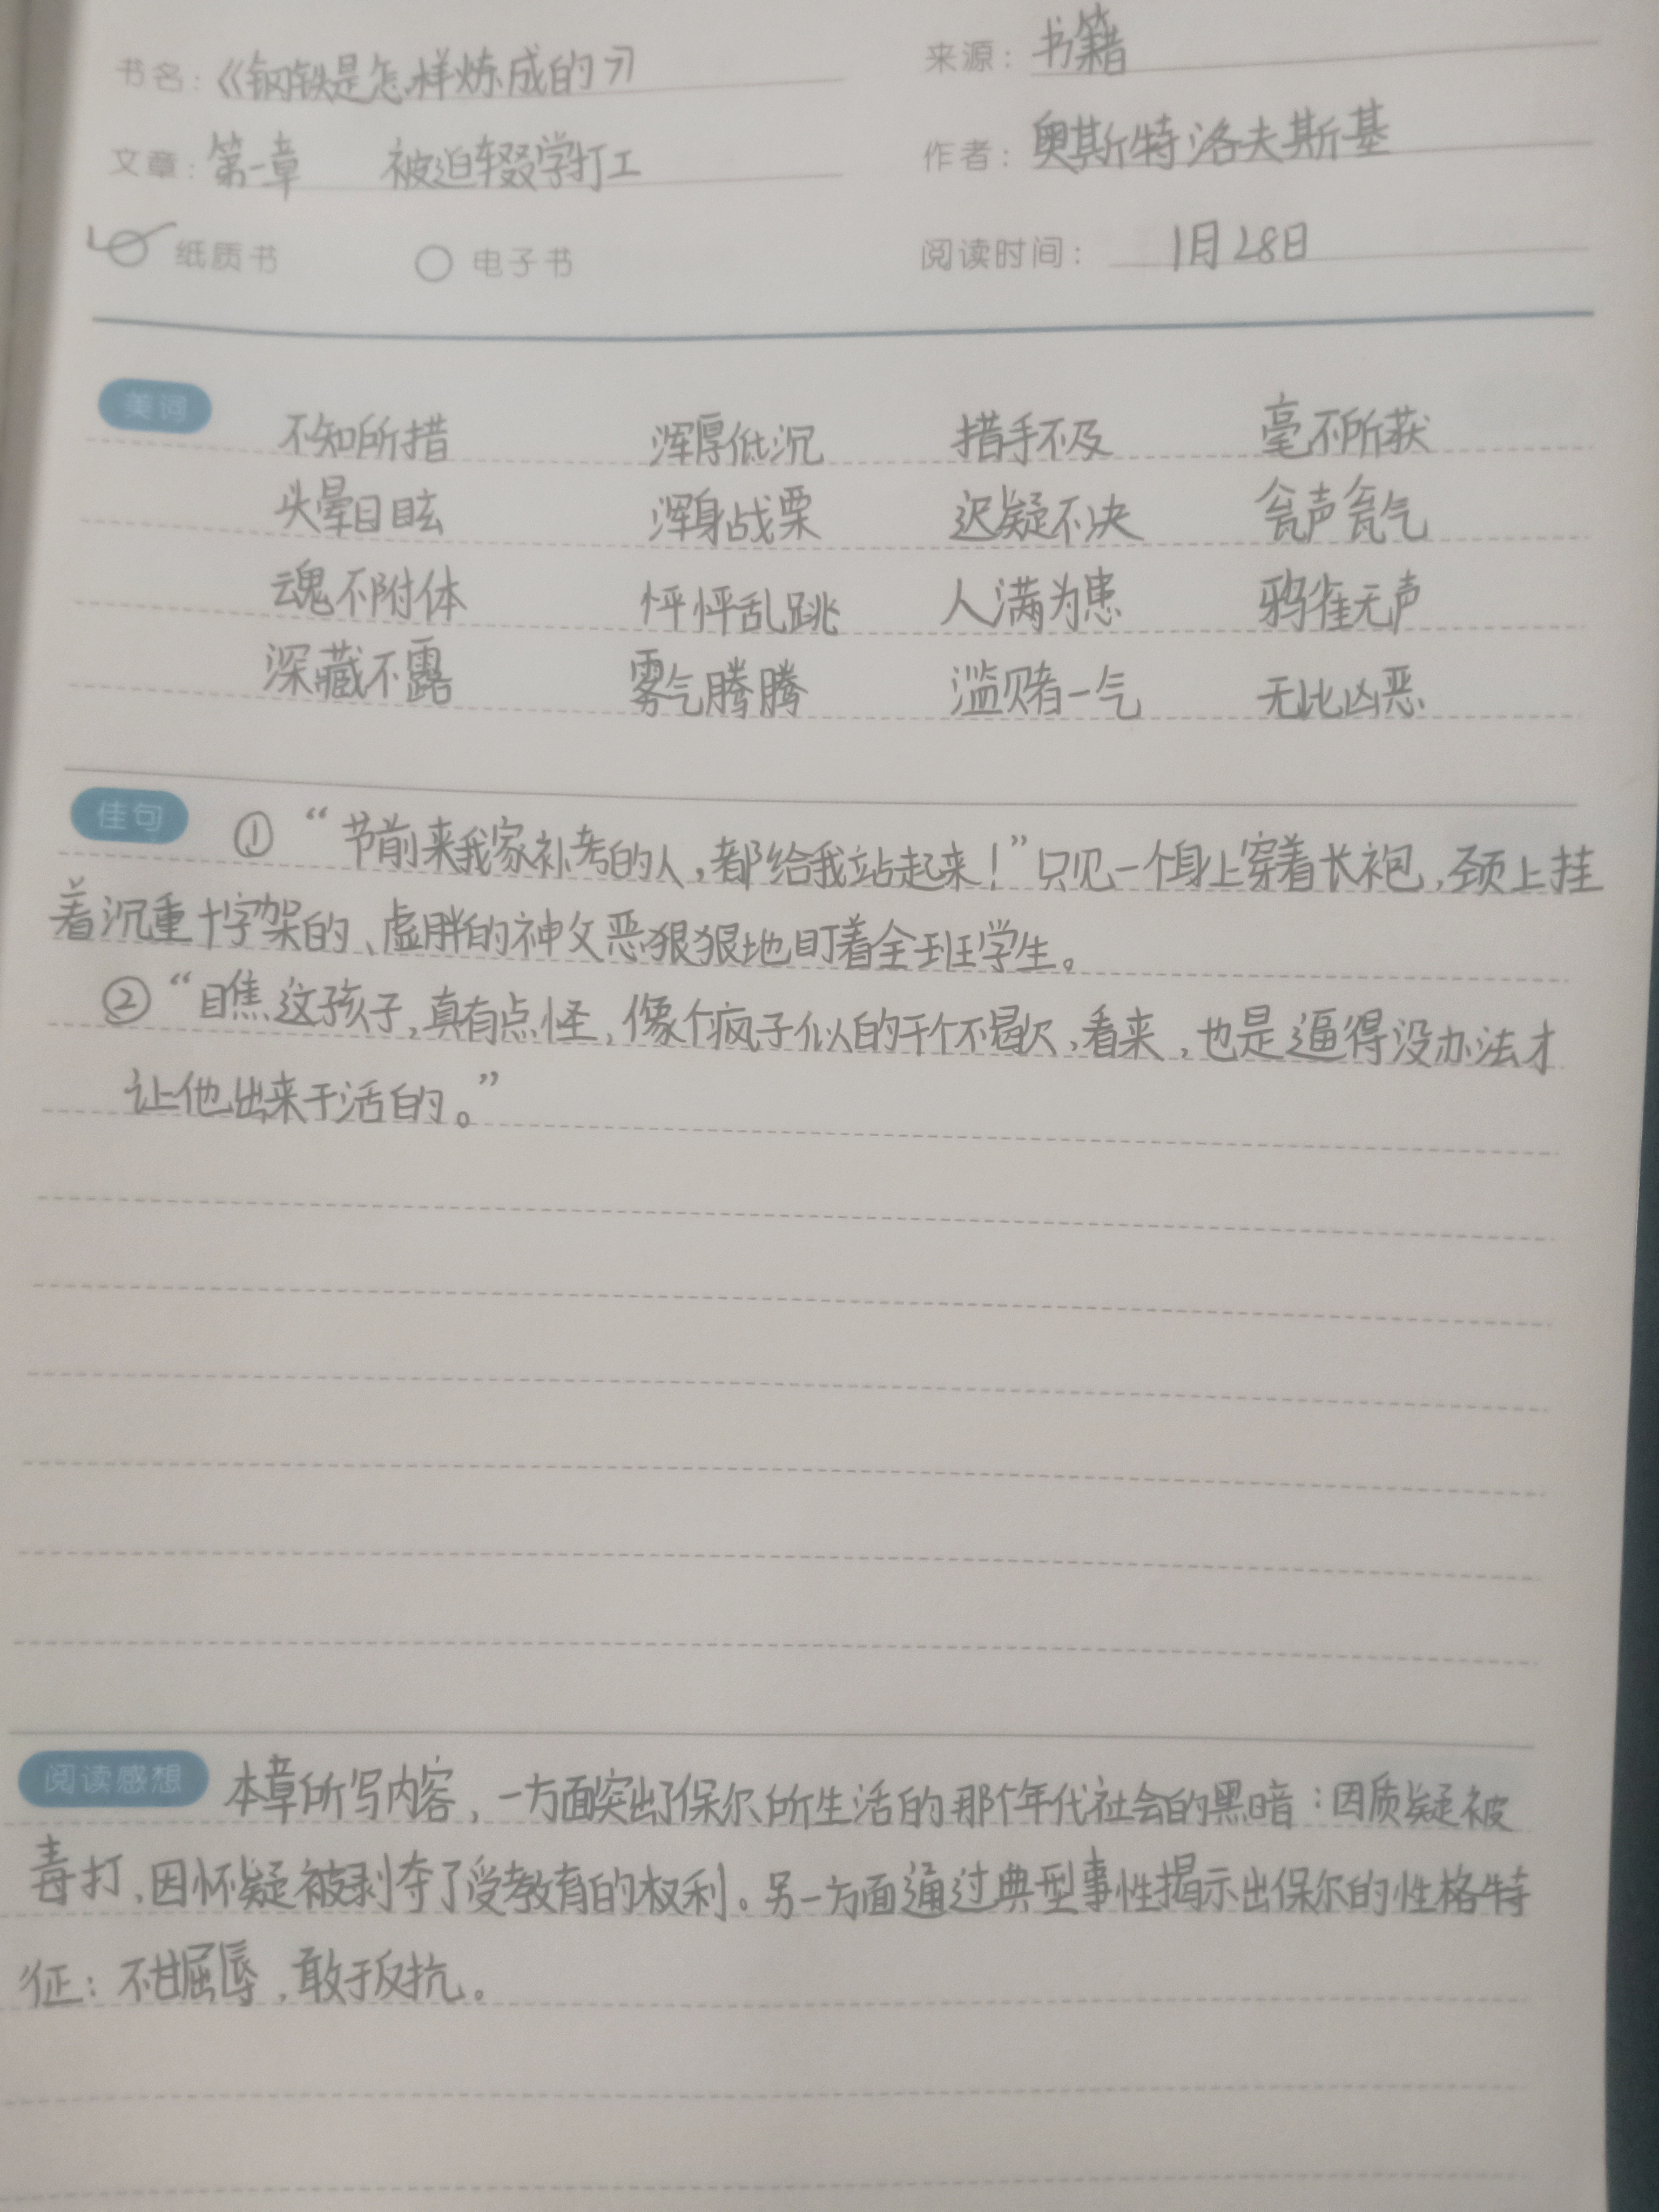 书名：《钢铁是怎样炼成的》 来源：书籍
文章：第一章 被迫辍学打工 作者：奥斯特洛夫斯基
纸质书 电子书 阅读时间：1月28日
美词 不知所措 浑厚低沉 措手不及 毫不所获
头晕目眩 浑身战栗 迟疑不决 瓮声瓮气
魂不附体 怦怦乱跳 人满为患 鸦雀无声
深藏不露 雾气腾腾 滥赌一气 无比凶恶
佳句 ①“节前来我家补考的人，都给我站起来！”只见一个身上穿着长袍，颈上挂
着沉重十字架的、虚胖的神父恶狠狠地盯着全班学生。
②“瞧这孩子，真有点怪，像个疯子似的干个不歇，看来，也是逼得没办法才
让他出来干活的。”
阅读感想 本章所写内容，一方面突出了保尔所生活的那个年代社会的黑暗：因质疑被
毒打、因怀疑被剥夺了受教育的权利。另一方面通过典型事性揭示出保尔的性格特
征：不甘屈辱，敢于反抗。